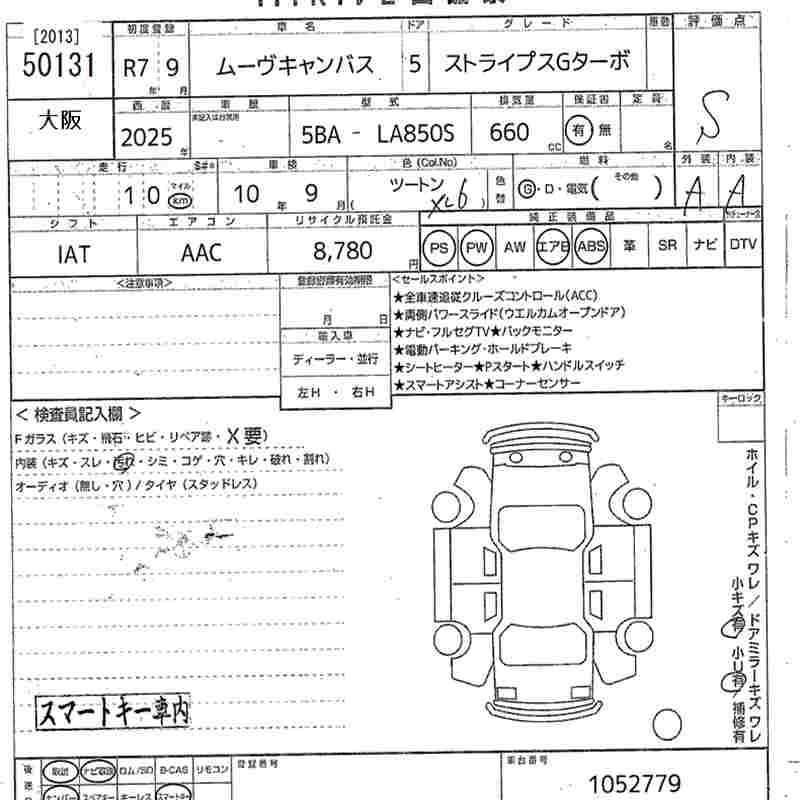 [2013]
50131
初度登録
車名
ドア
グレード
車歴
評価点
R7 9
年 月
ムーヴキャンバス
5
ストライプスGターボ
S
大阪
西暦
車歴
型式
排気量
保証書
定員
2025
年
未記入は自家用
-
5BA - LA850S
660
CC
有 無
名
走行
S#*
車検
色(Col.No)
燃料
外装
内装
10
マイル
km
10 年 9 月
ツートン
( XL6 )
色替
G・D・電気( その他 )
A
A
シフト
エアコン
リサイクル預託金
純正装備品
IAT
AAC
8,780
円
PS PW AW エアB ABS 革 SR ナビ DTV
<注意事項>
月 日
輸入車
ディーラー・並行
左H ・ 右H
<セールスポイント>
★全車速追従クルーズコントロール(ACC)
★両側パワースライド(ウエルカムオープンドア)
★ナビ・フルセグTV★バックモニター
★電動パーキング・ホールドブレーキ
★シートヒーター★Pスタート★ハンドルスイッチ
★スマートアシスト★コーナーセンサー
キーロック
< 検査員記入欄 >
Fガラス (キズ・飛石・ヒビ・リペア跡・X要)
内装 (キズ・スレ・汚れ・シミ・コゲ・穴・キレ・破れ・割れ)
オーディオ (無し・穴) / タイヤ (スタッドレス)
ホイル・CPキズ ワレ / ドアミラーキズ ワレ
小キズ有 小U有 / 補修有
スマートキー車内
後送
取説 ナビ取説 ロム/SD B-CAS リモコン
ナンバー スペアキー キーレス スマートキー
登録番号
車台番号
1052779